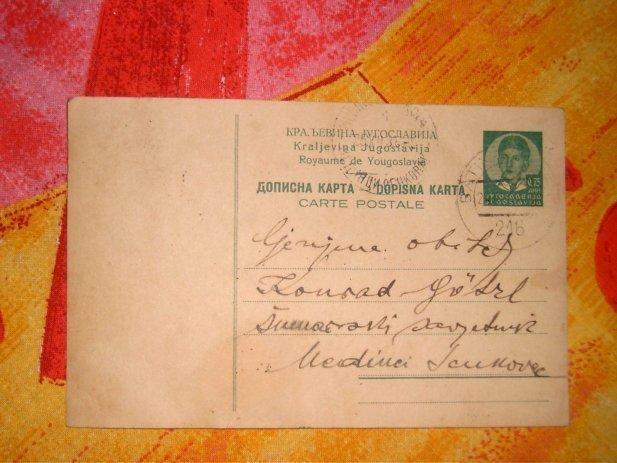 КРАЉЕВИНА ЈУГОСЛАВИЈА
Kraljevina Jugoslavija
Royaume de Yougoslavie
ДОПИСНА КАРТА - DOPISNA KARTA
CARTE POSTALE
0.75
ДИН
ЈУГОСЛАВИЈА
JUGOSLAVIJA
216
Cjenjena obitelj
Konrad Götzl
šumarski savjetnik
Medinci Senkovac